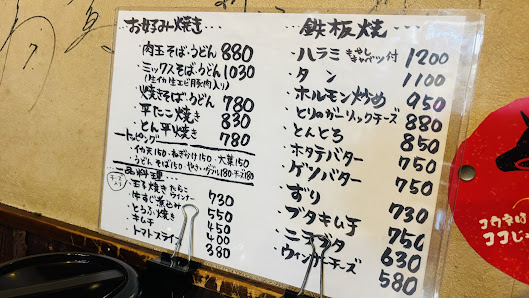 お好み焼き…
・肉玉そば・うどん 880
・ミックスそば・うどん 1030
(生イカ生エビ豚肉入り)
・焼きそば・うどん 780
・平たこ焼き 830
・とん平焼き 780
トッピング
・イカ天150・ねぎかけ150・大葉150
うどん・そば150
一品料理
チーズ入り
・玉子焼き たらこ ウインナー 730
・牛すじ煮込み 550
・とうふ焼き 450
・キムチ 400
・トマトスライス 380
鉄板焼…
・ハラミ もやし キャベツ付 1200
・タン 1100
・ホルモン炒め 950
・とりのガーリックチーズ 880
・とんとろ 850
・ホタテバター 750
・ゲソバター 750
・ずり 730
・ブタキムチ 750
・ニラブタ 630
・ウィンナーチーズ 580